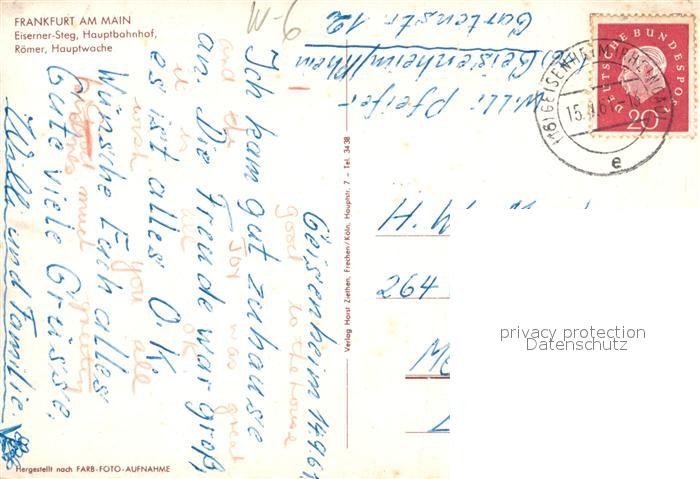 FRANKFURT AM MAIN
Eiserner-Steg, Hauptbahnhof,
Römer, Hauptwache
Geisenheim 14.9.61
Ich kam gut zuhause
an. Die Freude war groß,
es ist alles O.K.
Wünsche Euch alles
Gute viele Grüsse.
Willi und Familie.
good to the house
and the joy was great
it is all OK.
wish you all
good much greeting
Hergestellt nach FARB-FOTO-AUFNAHME
Verlag Horst Ziethen, Frechen/Köln, Hauptstr. 7 – Tel. 3438
W-9
Willi Pfeifer
Geisenheim/Rhein
Gartenstr. 12
(16) GEISENHEIM (RHEINGAU)
e
DEUTSCHE BUNDESPOST
20
264
privacy protection
Datenschutz